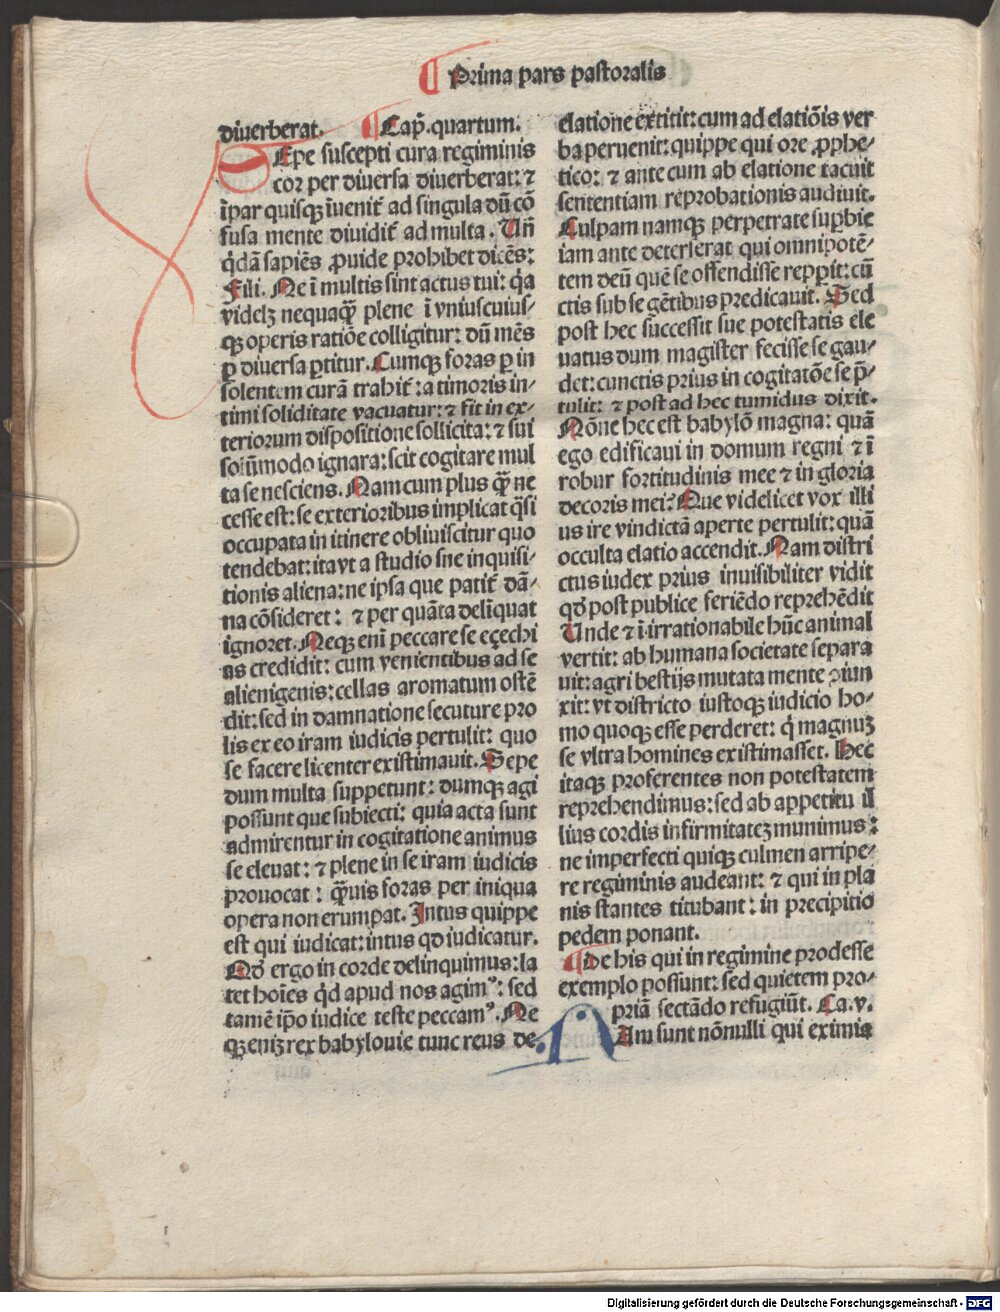 ¶ Prima pars pastoralis
diuerberat. ¶ Cap̄. quartum.
SEpe suscepti cura regiminis
cor per diuersa diuerberat: ⁊
īpar quisqꝫ īuenit᷑ ad singula dū cō
fusa mente diuidit᷑ ad multa. Un̄
q̇dā sapiēs ꝓuide prohibet dicēs:
Fili. Ne ī multis sint actus tui: q̇a
videlꝫ nequaqꝫ̄ plene ī vniuscuius⸗
qꝫ operis ratiōe colligitur: dū mēs
ꝑ diuersa ꝑtitur. Cumqꝫ foras ꝑ in
solentem curā trahit᷑: a timoris in⸗
timi soliditate vacuatur: ⁊ fit in ex⸗
teriorum dispositione sollicita: ⁊ sui
solūmodo ignara: scit cogitare mul
ta se nesciens. Nam cum plus qꝫ̄ ne
cesse est: se exterioribus implicat q̄si
occupata in itinere obliuiscitur quo
tendebat: ita vt a studio sne inquisi⸗
tionis aliena: ne ipsa que patit᷑ dā⸗
na cōsideret: ⁊ per quāta delīquat
ignoret. Neqꝫ enī peccare se eçechi
as credidit: cum venientibus ad se
alienigenis: cellas aromatum ostē
dit: sed in damnatione secuture pro
lis ex eo iram iudicis pertulit: quo
se facere licenter existimauit. Sepe
dum multa suppetunt: dumqꝫ agi
possunt que subiecti: quia acta sunt
admirentur in cogitatione animus
se eleuat: ⁊ plene in se iram iudicis
prouocat: qꝫ̄uis foras per iniqua
opera non erumpat. Intus quippe
est qui iudicat: intus qd iudicatur.
Qd̛ ergo in corde delinquimus: la
tet hoīes q̇d apud nos agimꝰ: sed
tamē ip̄o iudice teste peccamꝰ. Ne
qꝫ enīꝫ rex babylouie tunc reus de
elatione extitit: cum ad elatiōis ver
ba peruenit: quippe qui ore ꝓphe⸗
tico: ⁊ ante cum ab elatione tacuit
sententiam reprobationis audiuit.
Culpam namqꝫ perpetrate suꝑbie
iam ante deterserat qui omnipotē⸗
tem deū quē se offendisse repꝑit: cū
ctis sub se gētibus predicauit. Sed
post hec successit sue potestatis ele
uatus dum magister fecisse se gau⸗
det: cunctis prius in cogitatōe se p̄⸗
tulit: ⁊ post ad hec tumidus dixit.
Nōne hec est babylō magna: quā
ego edificaui in domum regni ⁊ ī
robur fortitudinis mee ⁊ in gloria
decoris mei? Que videlicet vox illi
us ire vindictā aperte pertulit: quā
occulta elatio accendit. Nam distri
ctus iudex prius inuisibiliter vidit
qd̛ post publice feriēdo reprehēdit
Unde ⁊ ī irrationabile hūc animal
vertit: ab humana societate separa
uit: agri bestijs mutata mente ꝯiun
xit: vt districto iustoqꝫ iudicio ho⸗
mo quoqꝫ esse perderet: q̇ magnuꝫ
se vltra homines existimasset. Hec
itaqꝫ proferentes non potestatem
reprehendimus: sed ab appetitu il
lius cordis infirmitateꝫ munimus:
ne imperfecti quiqꝫ culmen arripe⸗
re regiminis audeant: ⁊ qui in pla
nis stantes titubant: in precipitio
pedem ponant.
¶ De his qui in regimine prodesse
exemplo possunt: sed quietem pro⸗
priā sectādo refugiūt. Ca. v.
NAm sunt nōnulli qui eximia
Digitalisierung gefördert durch die Deutsche Forschungsgemeinschaft - DFG